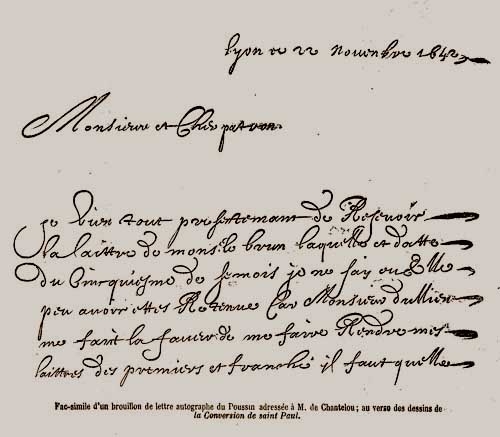 Lyon ce 22 Novenbre 1642
Monsieur et Cher patron
Je vien tout presentemant de Resevoir
la laittre de mons.r le brun laquelle et datte
du Cincquiesme de se mois je ne say ou Elle
peu avoir ettes Retenue Car Monsieur du Lien
me fait la faveur de me faire Rendre mes
laittres des premiers et franche il faut quelle
Fac-simile d'un brouillon de lettre autographe du Poussin adressée à M. de Chantelou ; au verso des dessins de
la Conversion de saint Paul.